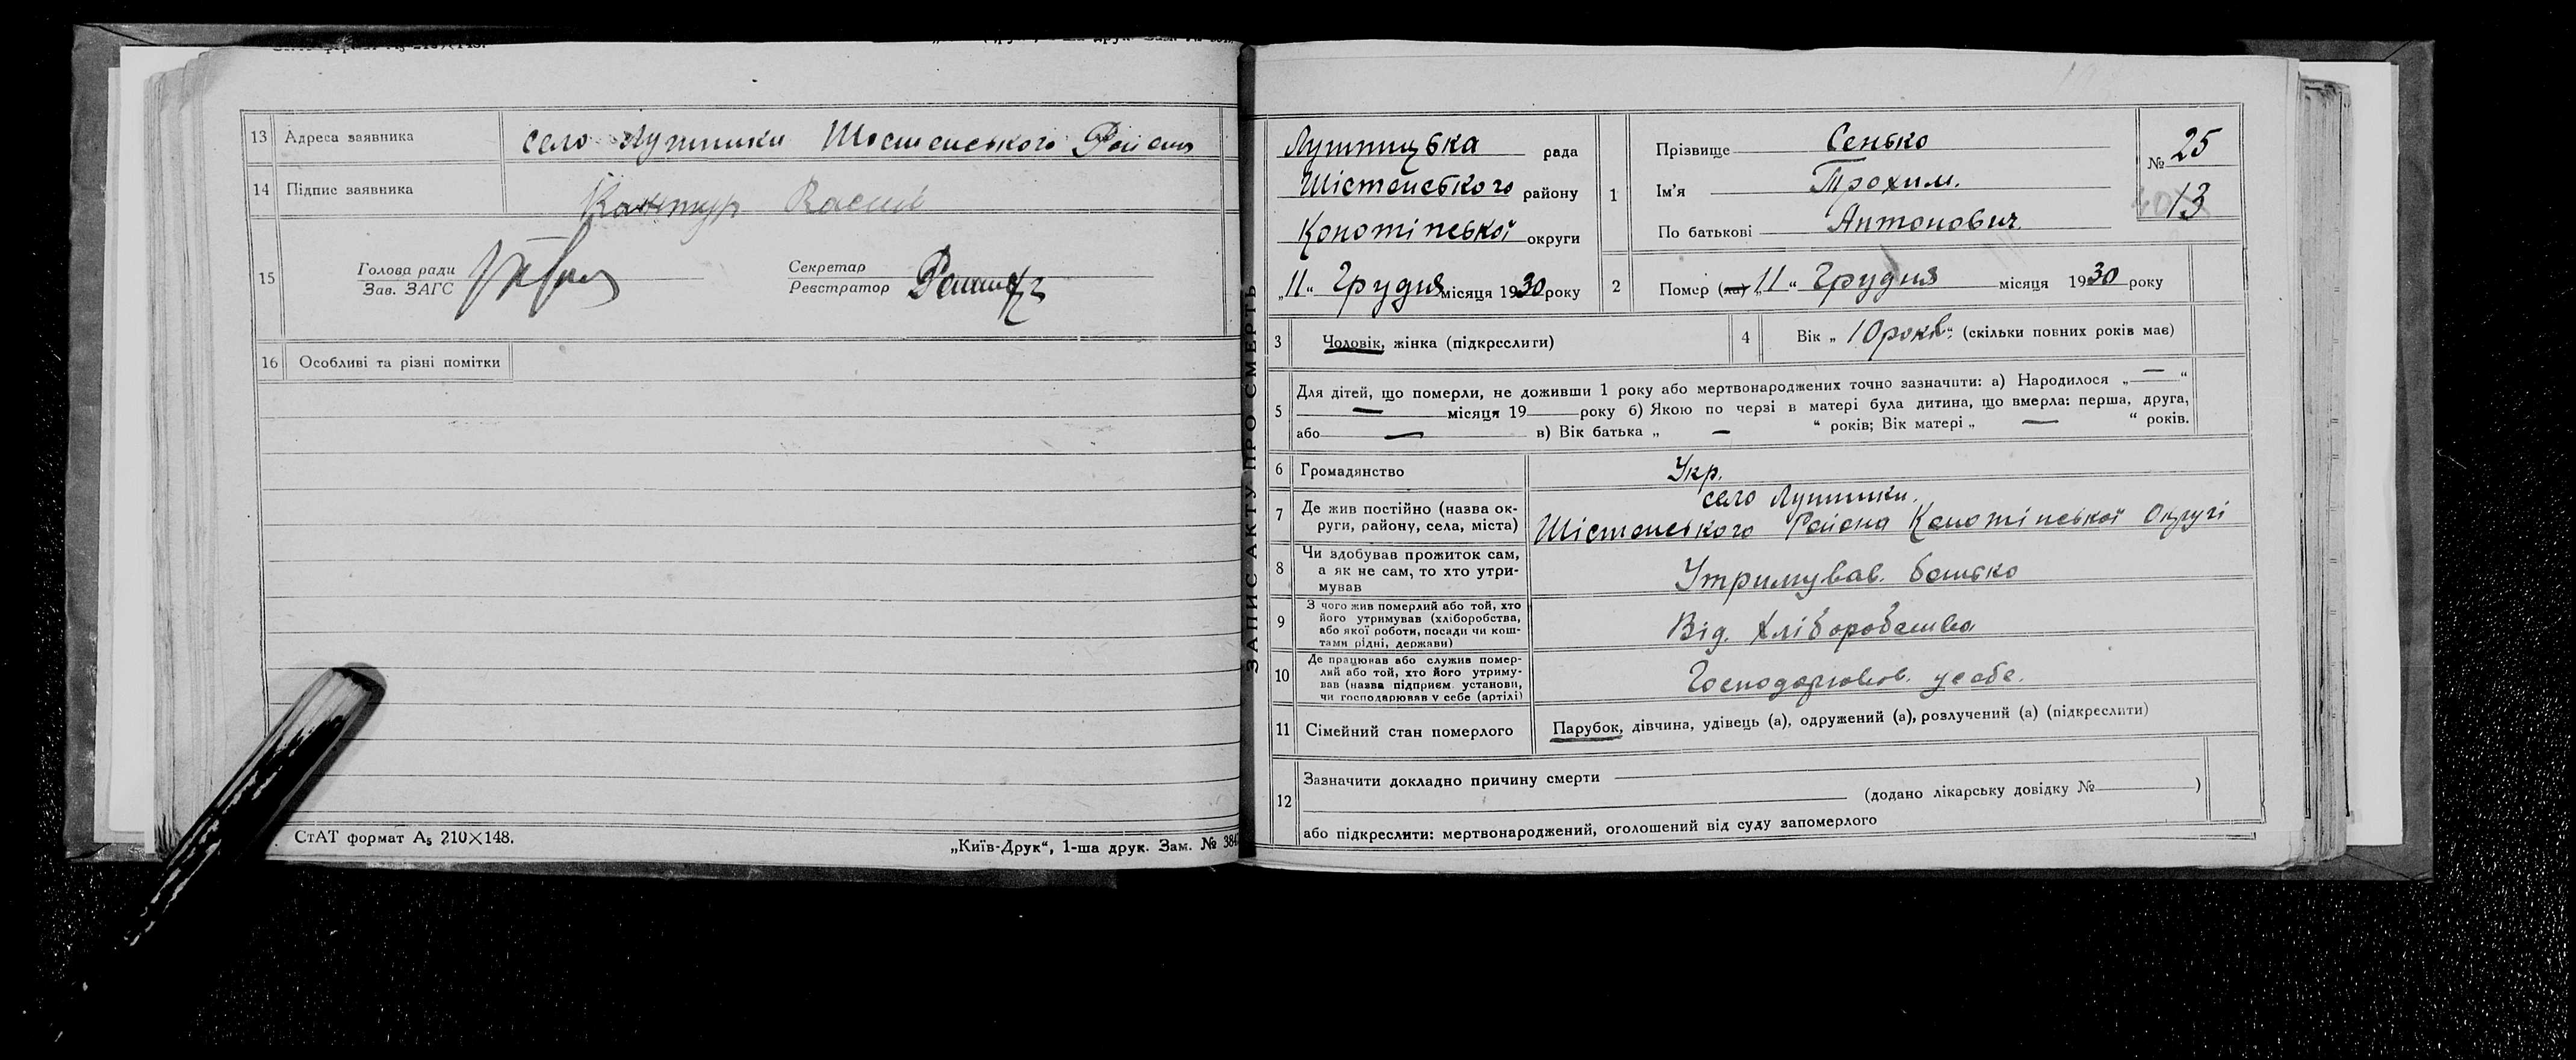 13 Адреса заявника село Лушники Шостенського Району
14 Підпис заявника
15 Голова ради
Зав. ЗАГС
Секретар
Реєстратор
16 Особливі та різні помітки
СтАТ формат А₅ 210×148.
„Київ-Друк“, 1-ша друк. Зам. №
ЗАПИС АКТУ ПРО СМЕРТЬ
Лушницька рада
Шістенського району
Конотіпської округи
„11“ Грудня місяця 1930 року
1 Прізвище Сенько
Ім'я Трохим.
По батькові Антонович.
№ 25
13
2 Помер (ла) „11“ Грудня місяця 1930 року
3 Чоловік, жінка (підкреслити)
4 Вік „10 років“ (скільки повних років має)
5 Для дітей, що померли, не доживши 1 року або мертвонароджених точно зазначити: а) Народилося „—“
— місяця 19 року б) Якою по черзі в матері була дитина, що вмерла: перша, друга,
або — в) Вік батька „ — “ років; Вік матері „ — “ років.
6 Громадянство Укр.
7 Де жив постійно (назва ок-
руги, району, села, міста)
село Лушники.
Шістенського Района Конотіпської Округі
8 Чи здобував прожиток сам,
а як не сам, то хто утри-
мував
Утримував. батько
9 З чого жив померлий або той, хто
його утримував (хліборобства,
або якої роботи, посади чи кош-
тами рідні, держави)
Від. Хліборобства
10 Де працював або служив помер-
лий або той, хто його утриму-
вав (назва підприєм. установи,
чи господарював у себе (артілі)
Господарював. усебе.
11 Сімейний стан померлого Парубок, дівчина, удівець (а), одружений (а), розлучений (а) (підкреслити)
12 Зазначити докладно причину смерти
(додано лікарську довідку № )
або підкреслити: мертвонароджений, оголошений від суду запомерлого